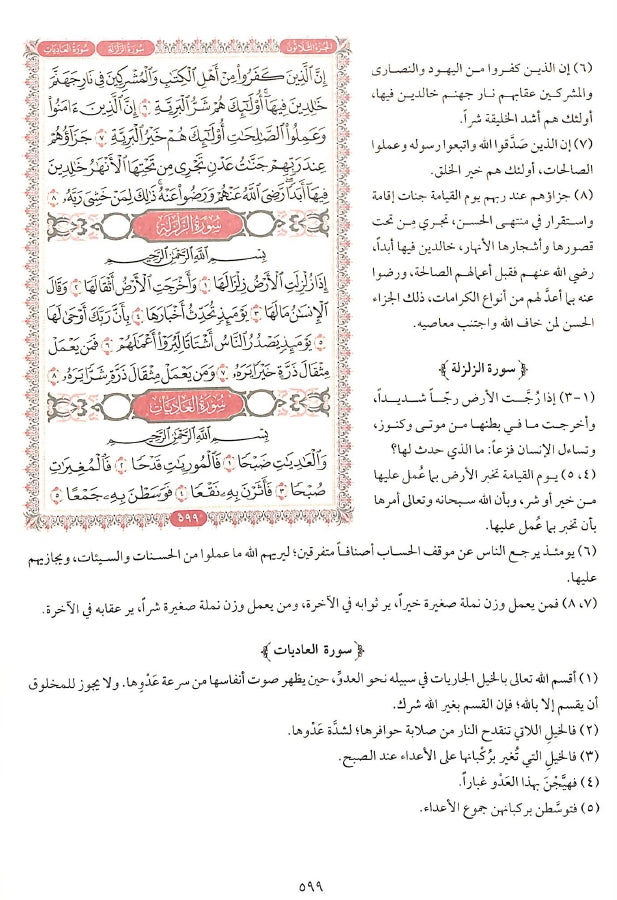 الجزء الثلاثون سورة الزلزلة سورة العاديات
إِنَّ ٱلَّذِينَ كَفَرُوا۟ مِنْ أَهْلِ ٱلْكِتَٰبِ وَٱلْمُشْرِكِينَ فِى نَارِ جَهَنَّمَ
خَٰلِدِينَ فِيهَآ أُو۟لَٰٓئِكَ هُمْ شَرُّ ٱلْبَرِيَّةِ ٦ إِنَّ ٱلَّذِينَ ءَامَنُوا۟
وَعَمِلُوا۟ ٱلصَّٰلِحَٰتِ أُو۟لَٰٓئِكَ هُمْ خَيْرُ ٱلْبَرِيَّةِ ٧ جَزَآؤُهُمْ
عِندَ رَبِّهِمْ جَنَّٰتُ عَدْنٍ تَجْرِى مِن تَحْتِهَا ٱلْأَنْهَٰرُ خَٰلِدِينَ
فِيهَآ أَبَدًا رَّضِىَ ٱللَّهُ عَنْهُمْ وَرَضُوا۟ عَنْهُ ذَٰلِكَ لِمَنْ خَشِىَ رَبَّهُۥ ٨
سُورَةُ الزَّلْزَلَةِ
بِسْمِ ٱللَّهِ ٱلرَّحْمَٰنِ ٱلرَّحِيمِ
إِذَا زُلْزِلَتِ ٱلْأَرْضُ زِلْزَالَهَا ١ وَأَخْرَجَتِ ٱلْأَرْضُ أَثْقَالَهَا ٢ وَقَالَ
ٱلْإِنسَٰنُ مَا لَهَا ٣ يَوْمَئِذٍ تُحَدِّثُ أَخْبَارَهَا ٤ بِأَنَّ رَبَّكَ أَوْحَىٰ لَهَا
٥ يَوْمَئِذٍ يَصْدُرُ ٱلنَّاسُ أَشْتَاتًا لِّيُرَوْا۟ أَعْمَٰلَهُمْ ٦ فَمَن يَعْمَلْ
مِثْقَالَ ذَرَّةٍ خَيْرًا يَرَهُۥ ٧ وَمَن يَعْمَلْ مِثْقَالَ ذَرَّةٍ شَرًّا يَرَهُۥ ٨
سُورَةُ العَادِيَاتِ
بِسْمِ ٱللَّهِ ٱلرَّحْمَٰنِ ٱلرَّحِيمِ
وَٱلْعَٰدِيَٰتِ ضَبْحًا ١ فَٱلْمُورِيَٰتِ قَدْحًا ٢ فَٱلْمُغِيرَٰتِ
صُبْحًا ٣ فَأَثَرْنَ بِهِۦ نَقْعًا ٤ فَوَسَطْنَ بِهِۦ جَمْعًا ٥
٥٩٩
(٦) إن الذين كفروا من اليهود والنصارى
والمشركين عقابهم نار جهنم خالدين فيها،
أولئك هم أشد الخليقة شراً.
(٧) إن الذين صَدَّقوا الله واتبعوا رسوله وعملوا
الصالحات، أولئك هم خير الخلق.
(٨) جزاؤهم عند ربهم يوم القيامة جنات إقامة
واستقرار في منتهى الحسن، تجري مِن تحت
قصورها وأشجارها الأنهار، خالدين فيها أبداً،
رضي الله عنهم فقبل أعمالهم الصالحة، ورضوا
عنه بما أعدَّ لهم من أنواع الكرامات، ذلك الجزاء
الحسن لمن خاف الله واجتنب معاصيه.
﴿سورة الزلزلة﴾
(١-٣) إذا رُجَّت الأرض رجّاً شديداً،
وأخرجت ما في بطنها من موتى وكنوز،
وتساءل الإنسان فزعاً: ما الذي حدث لها؟
(٤، ٥) يوم القيامة تخبر الأرض بما عُمل عليها
من خير أو شر، وبأن الله سبحانه وتعالى أمرها
بأن تخبر بما عُمل عليها.
(٦) يومئذ يرجع الناس عن موقف الحساب أصنافاً متفرقين؛ ليريهم الله ما عملوا من الحسنات والسيئات، ويجازيهم
عليها.
(٧، ٨) فمن يعمل وزن نملة صغيرة خيراً، ير ثوابه في الآخرة، ومن يعمل وزن نملة صغيرة شراً، ير عقابه في الآخرة.
﴿سورة العاديات﴾
(١) أقسم الله تعالى بالخيل الجاريات في سبيله نحو العدوِّ، حين يظهر صوت أنفاسها من سرعة عَدْوِها. ولا يجوز للمخلوق
أن يقسم إلا بالله؛ فإن القسم بغير الله شرك.
(٢) فالخيلِ اللاتي تنقدح النار من صلابة حوافرها؛ لشدَّة عَدْوها.
(٣) فالخيلِ التي تُغير برُكْبانها على الأعداء عند الصبح.
(٤) فهيَّجْنَ بهذا العَدْو غباراً.
(٥) فتوسَّطن بركبانهن جموع الأعداء.
٥٩٩